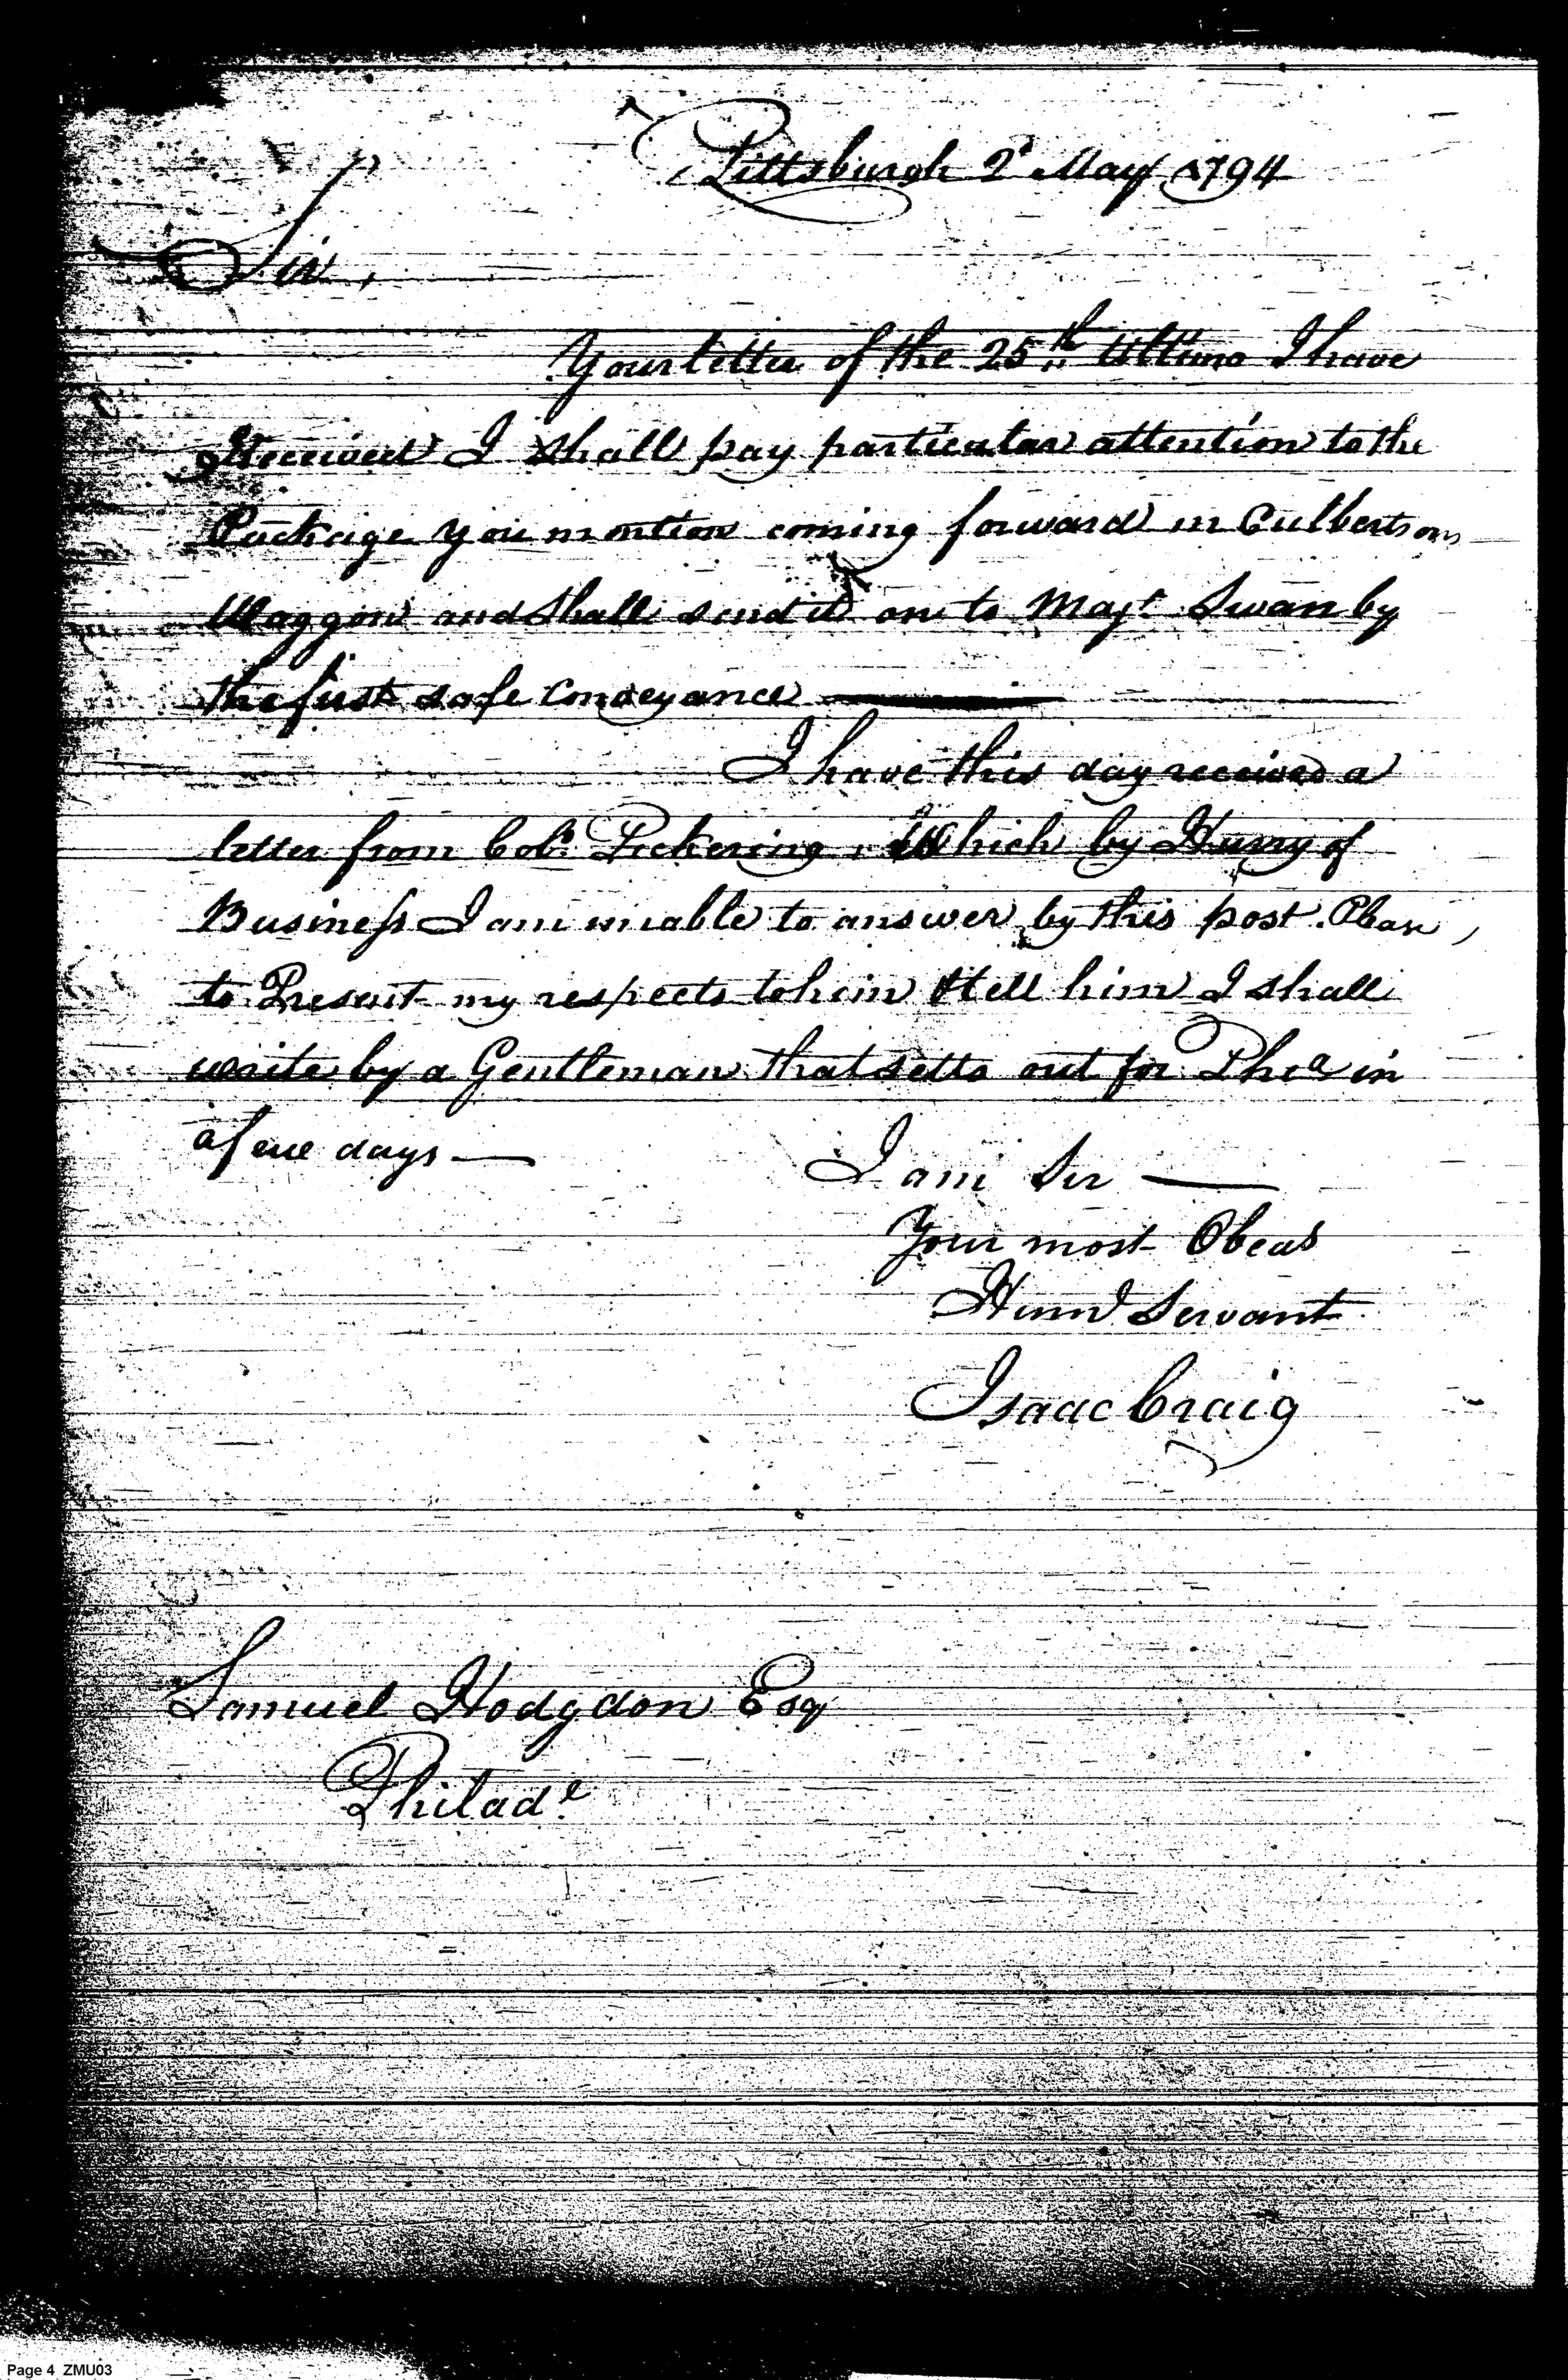 Pittsburgh 2d May 1794
Sir,
Your letter of the 25th Ultimo I have
Received I shall pay particular attention to the
Package you mention coming forward in Culbertsons
Waggon and shall send it on to Majr Swan by
the first safe Conveyance
I have this day received a
letter from Colo Pickering, Which by Hurry of
Business I am unable to answer by this post. Please
to Present my respects to him & tell him I shall
write by a Gentleman that setts out for Phia in
a few days —
I am Sir —
Your most Obed
Humb Servant
Isaac Craig
Samuel Hodgdon Esq
Philade
Page 4 ZMU03